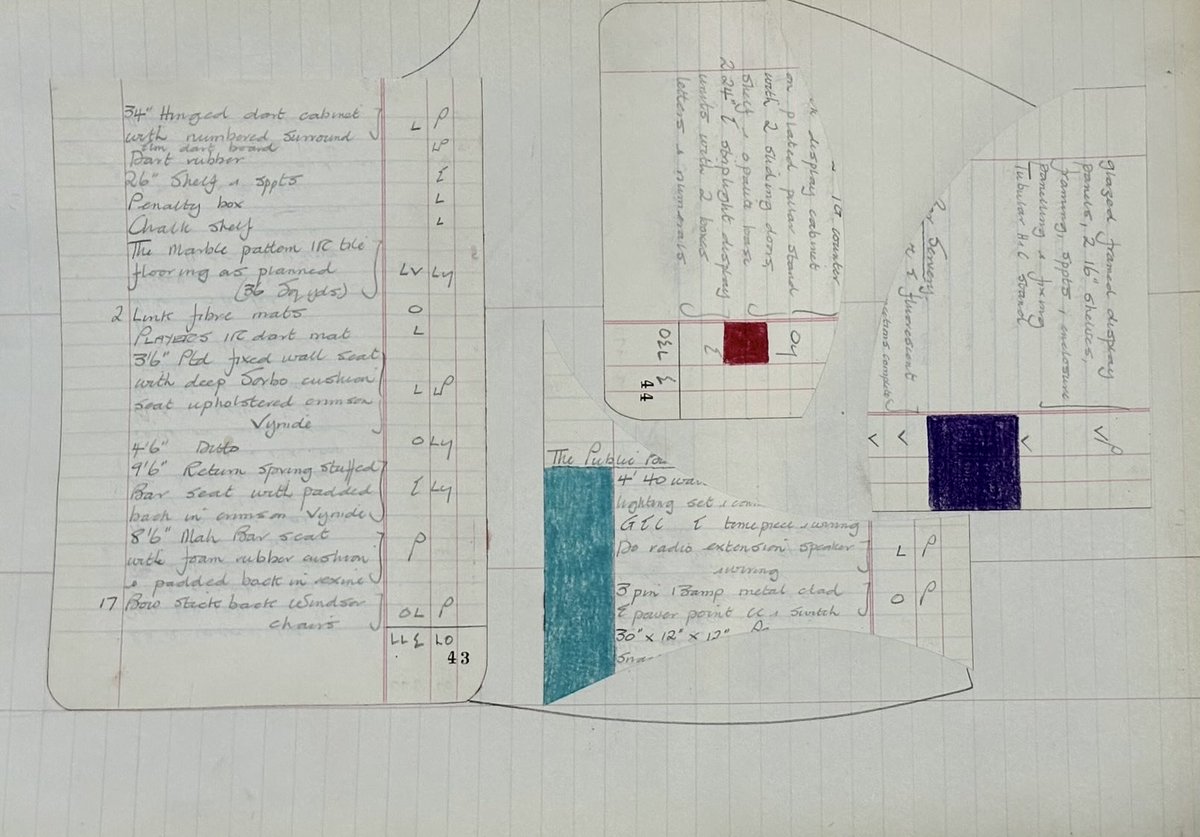 34" Hinged dart cabinet
with numbered surround L P
Elm dart board LP
Dart rubber
26" Shelf & sppts Σ
Penalty box L
Chalk shelf L
The Marble pattern IR tile
flooring as planned LV Ly
(36 Sq yds)
2 Link fibre mats O
PLAYERS IR dart mat L
3'6" Ptd fixed wall seat
with deep Sorbo cushion
seat upholstered crimson L LP
Vynide
4'6" Ditto O Ly
9'6" Return spring stuffed
Bar seat with padded Σ Ly
back in crimson Vynide
8'6" Mah Bar seat
with foam rubber cushion P
& padded back in rexine
17 Bow stick back Windsor
chairs OL P
LLΣ LO
43
counter
display cabinet
on plated pillar stand Oy
with 2 sliding doors,
shelf & opal base
2 24" Σ striplight display
units with 2 boxes Σ
letters & numerals
O3L Σ
44
glazed framed display
panels, 2 16" shelves,
framing, sppts & enclosure
panelling & fixing
Tubular H&C stand
VP
V
Servery
fluorescent
V
V
The Public
4' 40
lighting set
GEC Σ timepiece & wiring
Do radio extension speaker
& wiring L P
3 pin 13amp metal clad
Σ power point cc & switch O P
30" x 12" x 12"